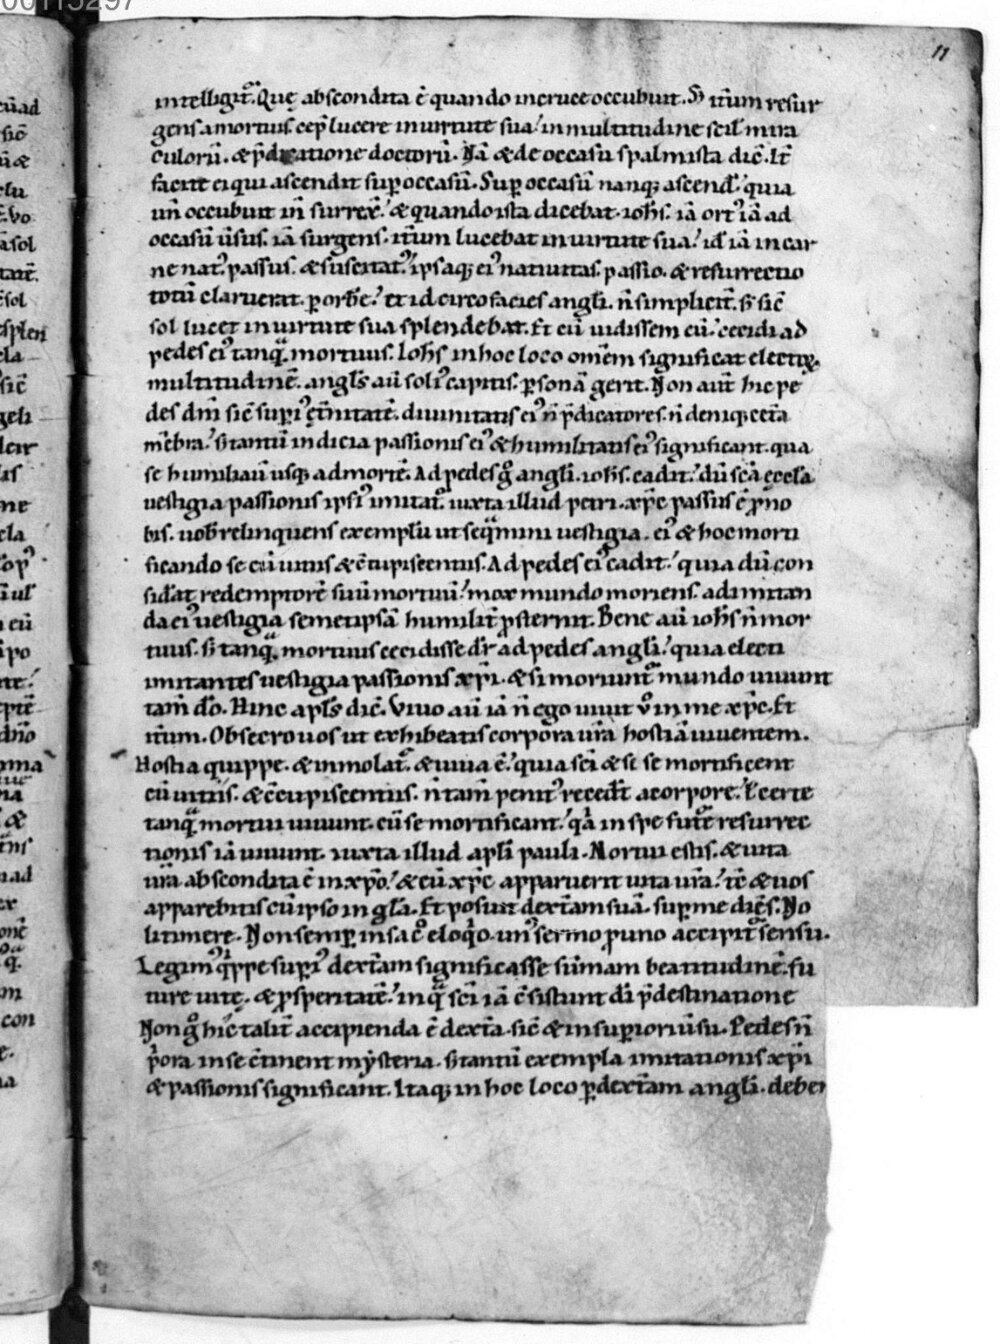 00113297
11
intelligit᷑. Quę abscondita ē quando incruce occubuit. S; itm̄ resur
gens a mortuis. cep̄ lucere in uirtute sua. in multitudine scil mira
culorū. & p̄dicatione doctorū. Nā & de occasu spalmista dic̄. It̄
facite ei qui ascendit sup occasū. Sup occasū nanq; ascend᷑. quia
un̄ occubuit in̄ surrex̄. & quando ista dicebat. ioħs. iā ort᷒ iā ad
occasū ūsus. iā surgens. itm̄ lucebat in uirtute sua. id iā in car
ne nat᷒. passus. & suscitat᷒. ipsaq; ei᷒ natiuitas. passio. & resurrectio
totū claruerat. p orbē. et id circo facies angli. n̄ simplicit̄. s; sic̄
sol lucet in uirtute sua splendebat. Et cū uidissem eū. cecidi ad
pedes ei᷒ tanq̄. mortuus. Ioħs in hoc loco om̄em significat electoꝝ
multitudinē. angl̄s aū soli᷒ capitis. psonā gerit. Non aut̄ hic pe
des dn̄i sic̄ supi᷒ et̄nitatē. diuinitatis ei᷒ n̄ p̄dicatores. n̄ deniq; cet̄a
m̄ebra. s; tantū indicia passionis ei᷒ & humilitatis ei᷒ significant. qua
se humiliauit usq; ad mortē. Ad pedes gͦ angli. ioħs. cadit. dū sc̄a eccl̄a
uestigia passionis ipsi᷒ imitat᷑. iuxta illud petri. xp̄c passus ē p̄ no
bis. nob̄ relinquens exemplū ut seq̄mini uestigia. ei᷒ & hoc morti
ficando se cū uitiis & c̄cupiscentiis. Ad pedes ei᷒ cadit. quia dū con
sid̄at redemptorē suū mortuū. mox mundo moriens. ad imitan
da ei᷒ uestigia semetipsā humilit̄ p̄sternit. Bene aū ioħs n̄ mor
tuus. s; tanq̄. mortuus cecidisse dr̄ ad pedes angli. quia electi
imitantes uestigia passionis xp̄i. & si moriunt᷑ mundo uiuunt
tam̄ dō. Hinc apl̄s dic̄. Viuo aū iā n̄ ego uiuit ū in me xp̄c. Et
itm̄. Obsecro uos ut exhibeatis corpora ur̄a hostiā uiuentem.
Hostia quippe. & immolat᷑. & uiua ē. quia sc̄i & si se mortificent
cū uitiis. & c̄cupiscentiis. n̄ tam̄ penit᷒ reced̄t a corpore. & certe
tanq̄ mortui uiuunt. cū se mortificant. qa in spe fut̄e resurrec
tionis iā uiuunt. iuxta illud apl̄i pauli. Mortui estis. & uita
ur̄a abscondita ē in xp̄o. & cū xp̄c apparuerit uita ur̄a. tc̄ & uos
apparebitis cū ipso in gl̄a. Et posuit dext̄am suā. sup me dicēs. No
li timere. Non semp in sacͦ eloqͦo. un᷒ sermo p̄ uno accipit᷑ sensu.
Legim᷒ q̄ppe supi᷒ dext̄am significasse sūmam beatitudinē. fu
ture uitę. & p̄speritatē. in q̄ sc̄i iā c̄sistunt di p̄destinatione
Non gͦ hic̄ talit̄ accipienda ē dext̄a. sic̄ & in supiori ūsu. Pedes n̄
p̄ora in se c̄tinent mẏsteria. s; tantū exempla imitationis xp̄i
& passionis significant. Itaq; in hoc loco p dext̄am angli. debem